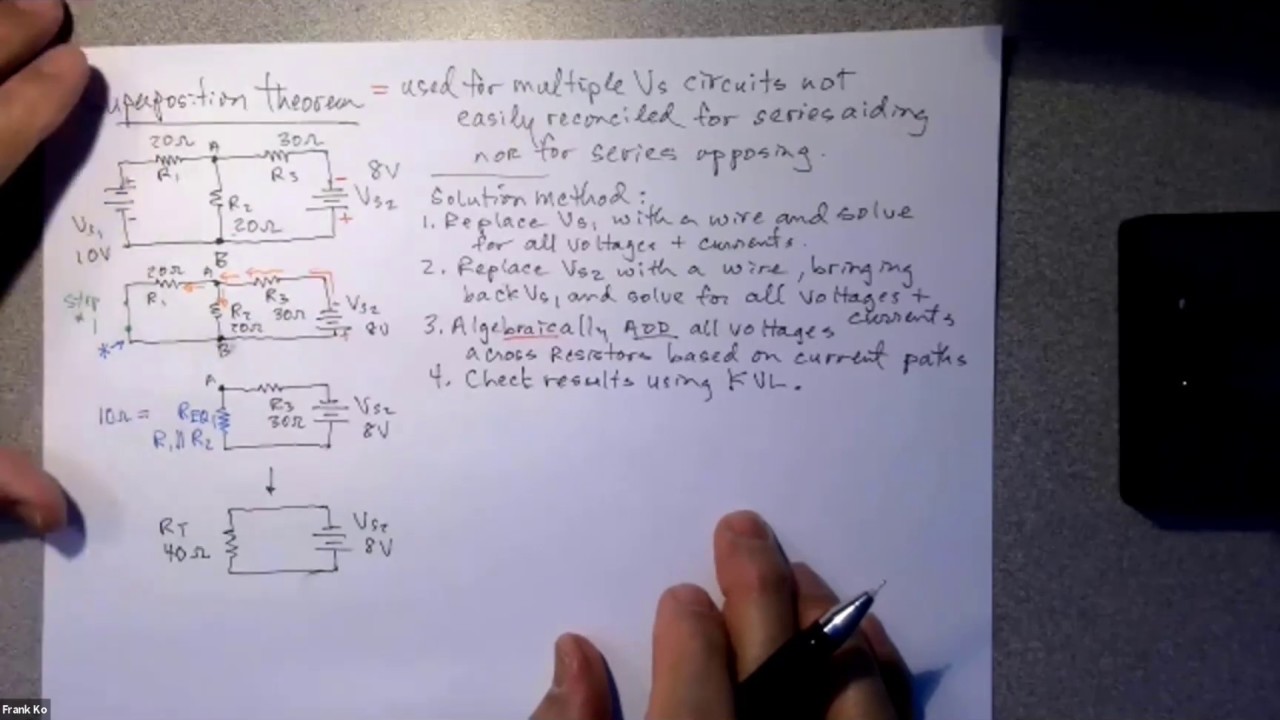 uperposition theorem = used for multiple Vs circuits not
easily reconciled for series aiding
nor for series opposing.
20Ω 30Ω
A
R1 R3
8V
R2
VS2
20Ω
VS1
10V
B
Solution method:
1. Replace VS1 with a wire and solve
for all voltages + currents.
2. Replace VS2 with a wire, bringing
back VS1 and solve for all voltages +
currents
3. Algebraically ADD all voltages
across Resistors based on current paths
4. Check results using KVL.
20Ω A
R1 R3
30Ω
Step
#1
R2
20Ω
VS2
8V
B
*
A
R3
30Ω
10Ω = REQ1
R1 || R2
VS2
8V
RT
40Ω
VS2
8V
Frank Ko